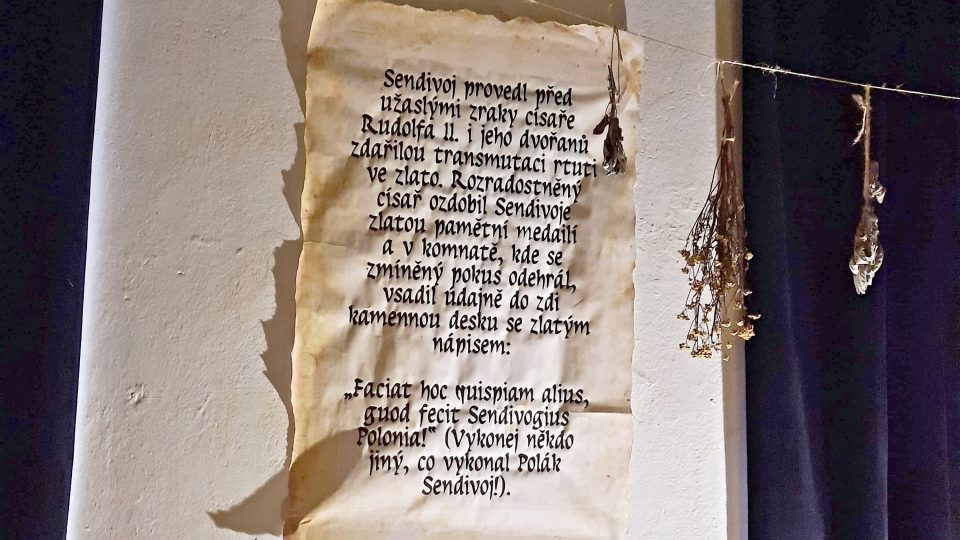 Sendivoj provedl před
užaslými zraky císaře
Rudolfa II. i jeho dvořanů
zdařilou transmutaci rtuti
ve zlato. Rozradostněný
císař ozdobil Sendivoje
zlatou pamětní medailí
a v komnatě, kde se
zmíněný pokus odehrál,
vsadil údajně do zdi
kamennou desku se zlatým
nápisem:
„Faciat hoc quispiam alius,
guod fecit Sendivogius
Polonia!“ (Vykonej někdo
jiný, co vykonal Polák
Sendivoj!).